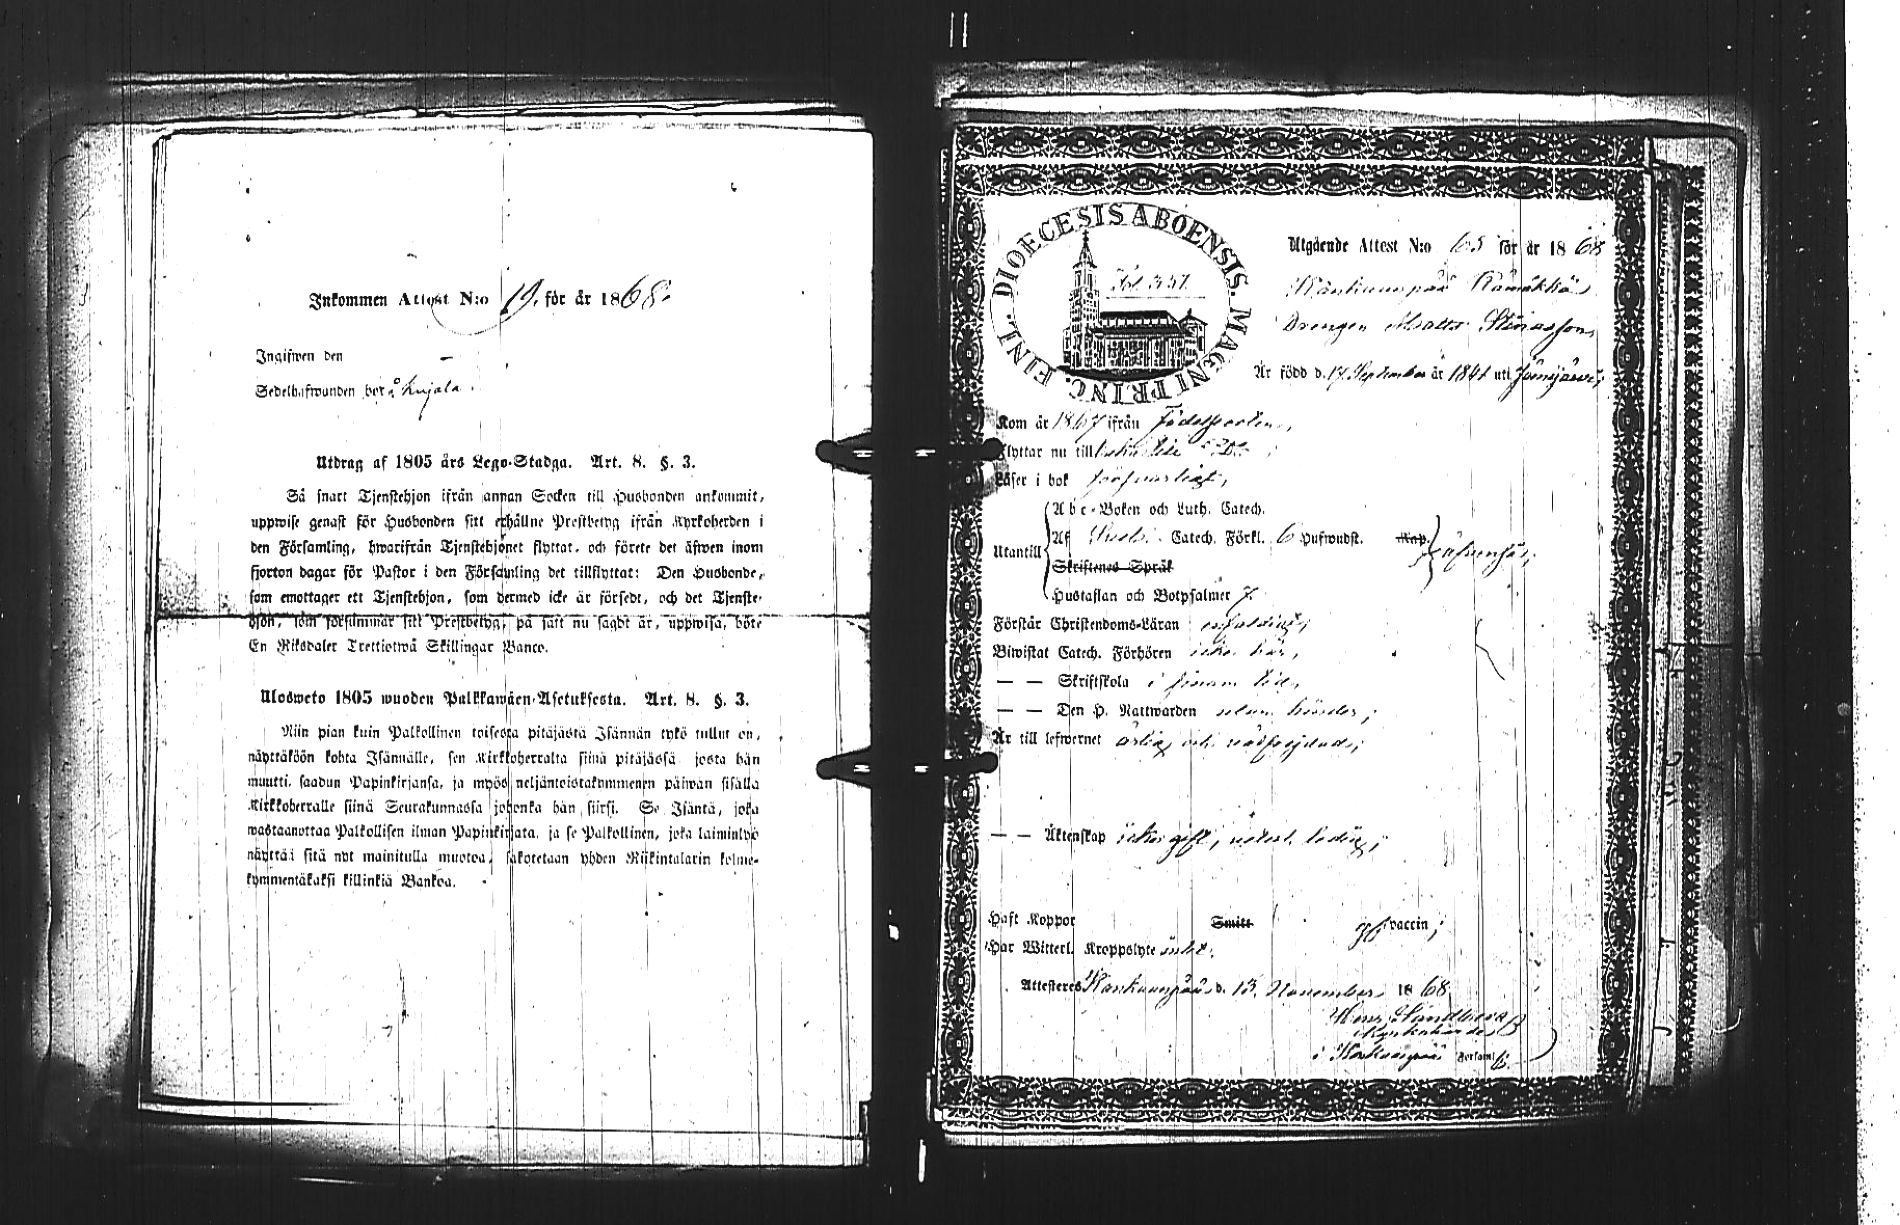 Inkommen Attest N:o 19. för år 1868.
Ingifwen den —
Sedelhafwanden bor å Kujala.
Utdrag af 1805 års Lego-Stadga. Art. 8. §. 3.
Så snart Tjenstehjon ifrån annan Socken till Husbonden ankommit,
uppwise genast för Husbonden sitt erhållne Prestbetyg ifrån Kyrkoherden i
den Församling, hwarifrån Tjenstehjonet flyttat, och förete det äfwen inom
fjorton dagar för Pastor i den Församling det tillflyttat: Den Husbonde,
som emottager ett Tjenstehjon, som dermed icke är försedt, och det Tjenste-
hjon, som försummar sitt Prestbetyg, på sätt nu sagdt är, uppwisa, böte
En Riksdaler Trettiotwå Skillingar Banco.
Ulosweto 1805 wuoden Palkkawäen-Asetuksesta. Art. 8. §. 3.
Niin pian kuin Palkollinen toisesta pitäjästä Isännän tykö tullut on,
näyttäköön kohta Isännälle, sen Kirkkoherralta siinä pitäjässä josta hän
muutti, saadun Papinkirjansa, ja myös neljäntoistakymmenen päiwän sisällä
Kirkkoherralle siinä Seurakunnassa johonka hän siirsi. Se Isäntä, joka
wastaanottaa Palkollisen ilman Papinkirjata, ja se Palkollinen, joka laiminlyö
näyttää sitä nyt mainitulla muotoa, sakotetaan yhden Riikintalarin kolme-
kymmentäkaksi killinkiä Bankoa.
DIOECESIS ABOENSIS. MAGNI PRINC. FINL.
Fol. 351.
Utgående Attest N:o 65 för år 1868
Kankaanpää
Drengen Matts
Är född d. 17 September år 1841 uti Jämijärvi,
Kom år 1867 ifrån födelseorten,
Flyttar nu till
Läser i bok försvarligt,
Utantill
Abc-Boken och Luth. Catech.
Af Catech. Förkl. 6 Hufwudst. Kap.
Skriftenes Språk
Hustaflan och Botpsalmer 7.
Förstår Christendoms-Läran enfaldigt,
Biwistat Catech. Förhören icke här,
— — Skriftskola i sinom tid,
— — Den H. Nattwarden utan hinder,
Är till lefwernet ärlig och
— — Äktenskap icke gift, ledig;
Haft Koppor Smitt vaccin;
Har Witterl. Kroppslyte intet.
Attesteras Kankaanpää d. 13. November 1868
Kyrkoherde
i Kankaanpää Församl.